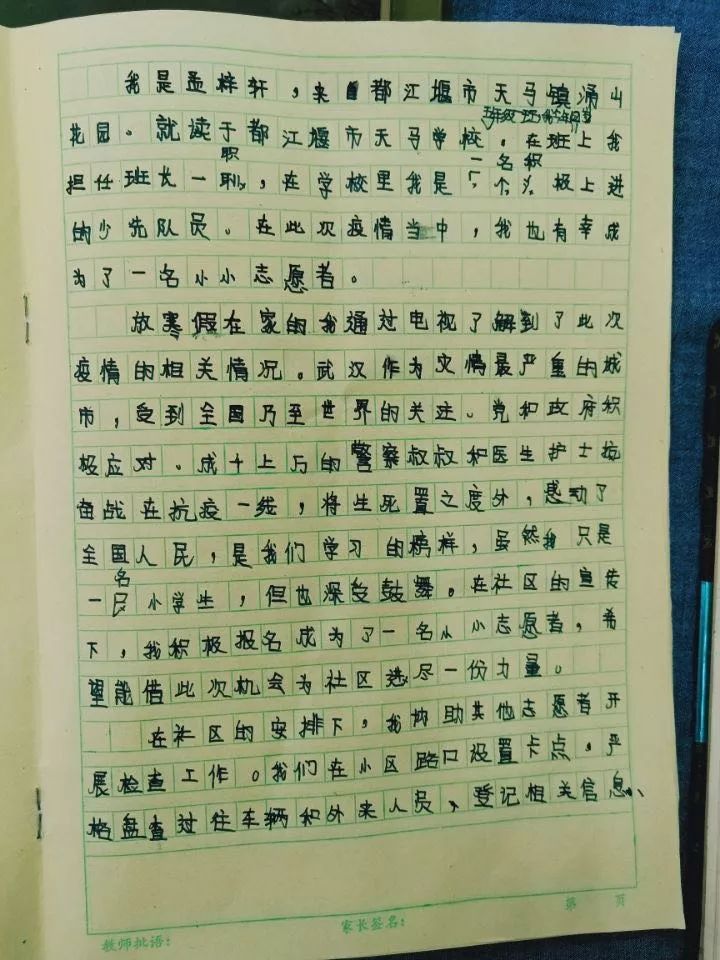 我是孟梓轩，来自都江堰市天马镇涌山
花园。就读于都江堰市天马学校，在班上我
职
一名积
担任班长一职，在学校里我是一个头极上进
的少先队员。在此次疫情当中，我也有幸成
为了一名小小志愿者。
放寒假在家的我通过电视了解到了此次
疫情的相关情况。武汉作为灾情最严重的城
市，受到全国乃至世界的关注。党和政府积
极应对。成千上万的警察叔叔和医生护士抗
奋战在抗疫一线，将生死置之度外，感动了
全国人民，是我们学习的榜样，虽然我只是
名
一民小学生，但也深受鼓舞。在社区的宣传
下，我积极报名成为了一名小小志愿者，希
望能借此次机会为社区选尽一份力量。
在社区的安排下，我协助其他志愿者开
展检查工作。我们在小区路口设置卡点，严
格盘查过往车辆和外来人员，登记相关信息、
第 页
家长签名：
教师批语：